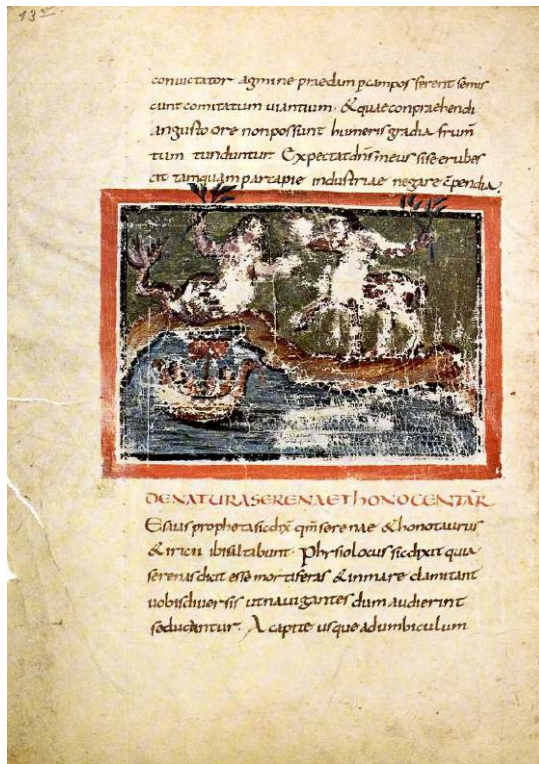 conuictator agmine praedam pcampos ferent semis
cunt comitatum uiantium. & quae conpraehendi
angusto ore non possunt humeris gradia frum̄
tum tunduntur. Expectat dn̄s meus sise erubes
cit tamquam participie industriae negare
DE NATURA SERENAE ET HONOCENTAR̄
Esaias propheta sic dix̄ qm̄ serenae & honotaurus
& iricii ibi saltabunt. Phisiolocus sic dixit quia
serenas dicit esse mortiferas & in mare clamitant
uobis diuersis ut nauigantes dum audierint
seducantur. A capite usque ad umbiculum